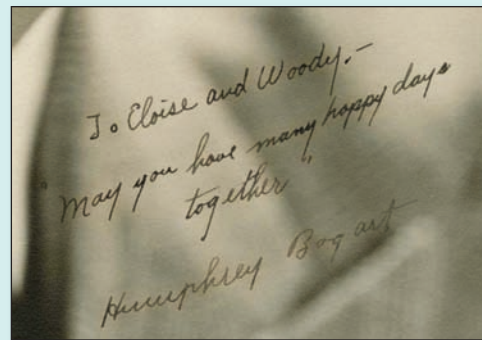 To Eloise and Woody.—
"May you have many happy days
together"
Humphrey Bogart